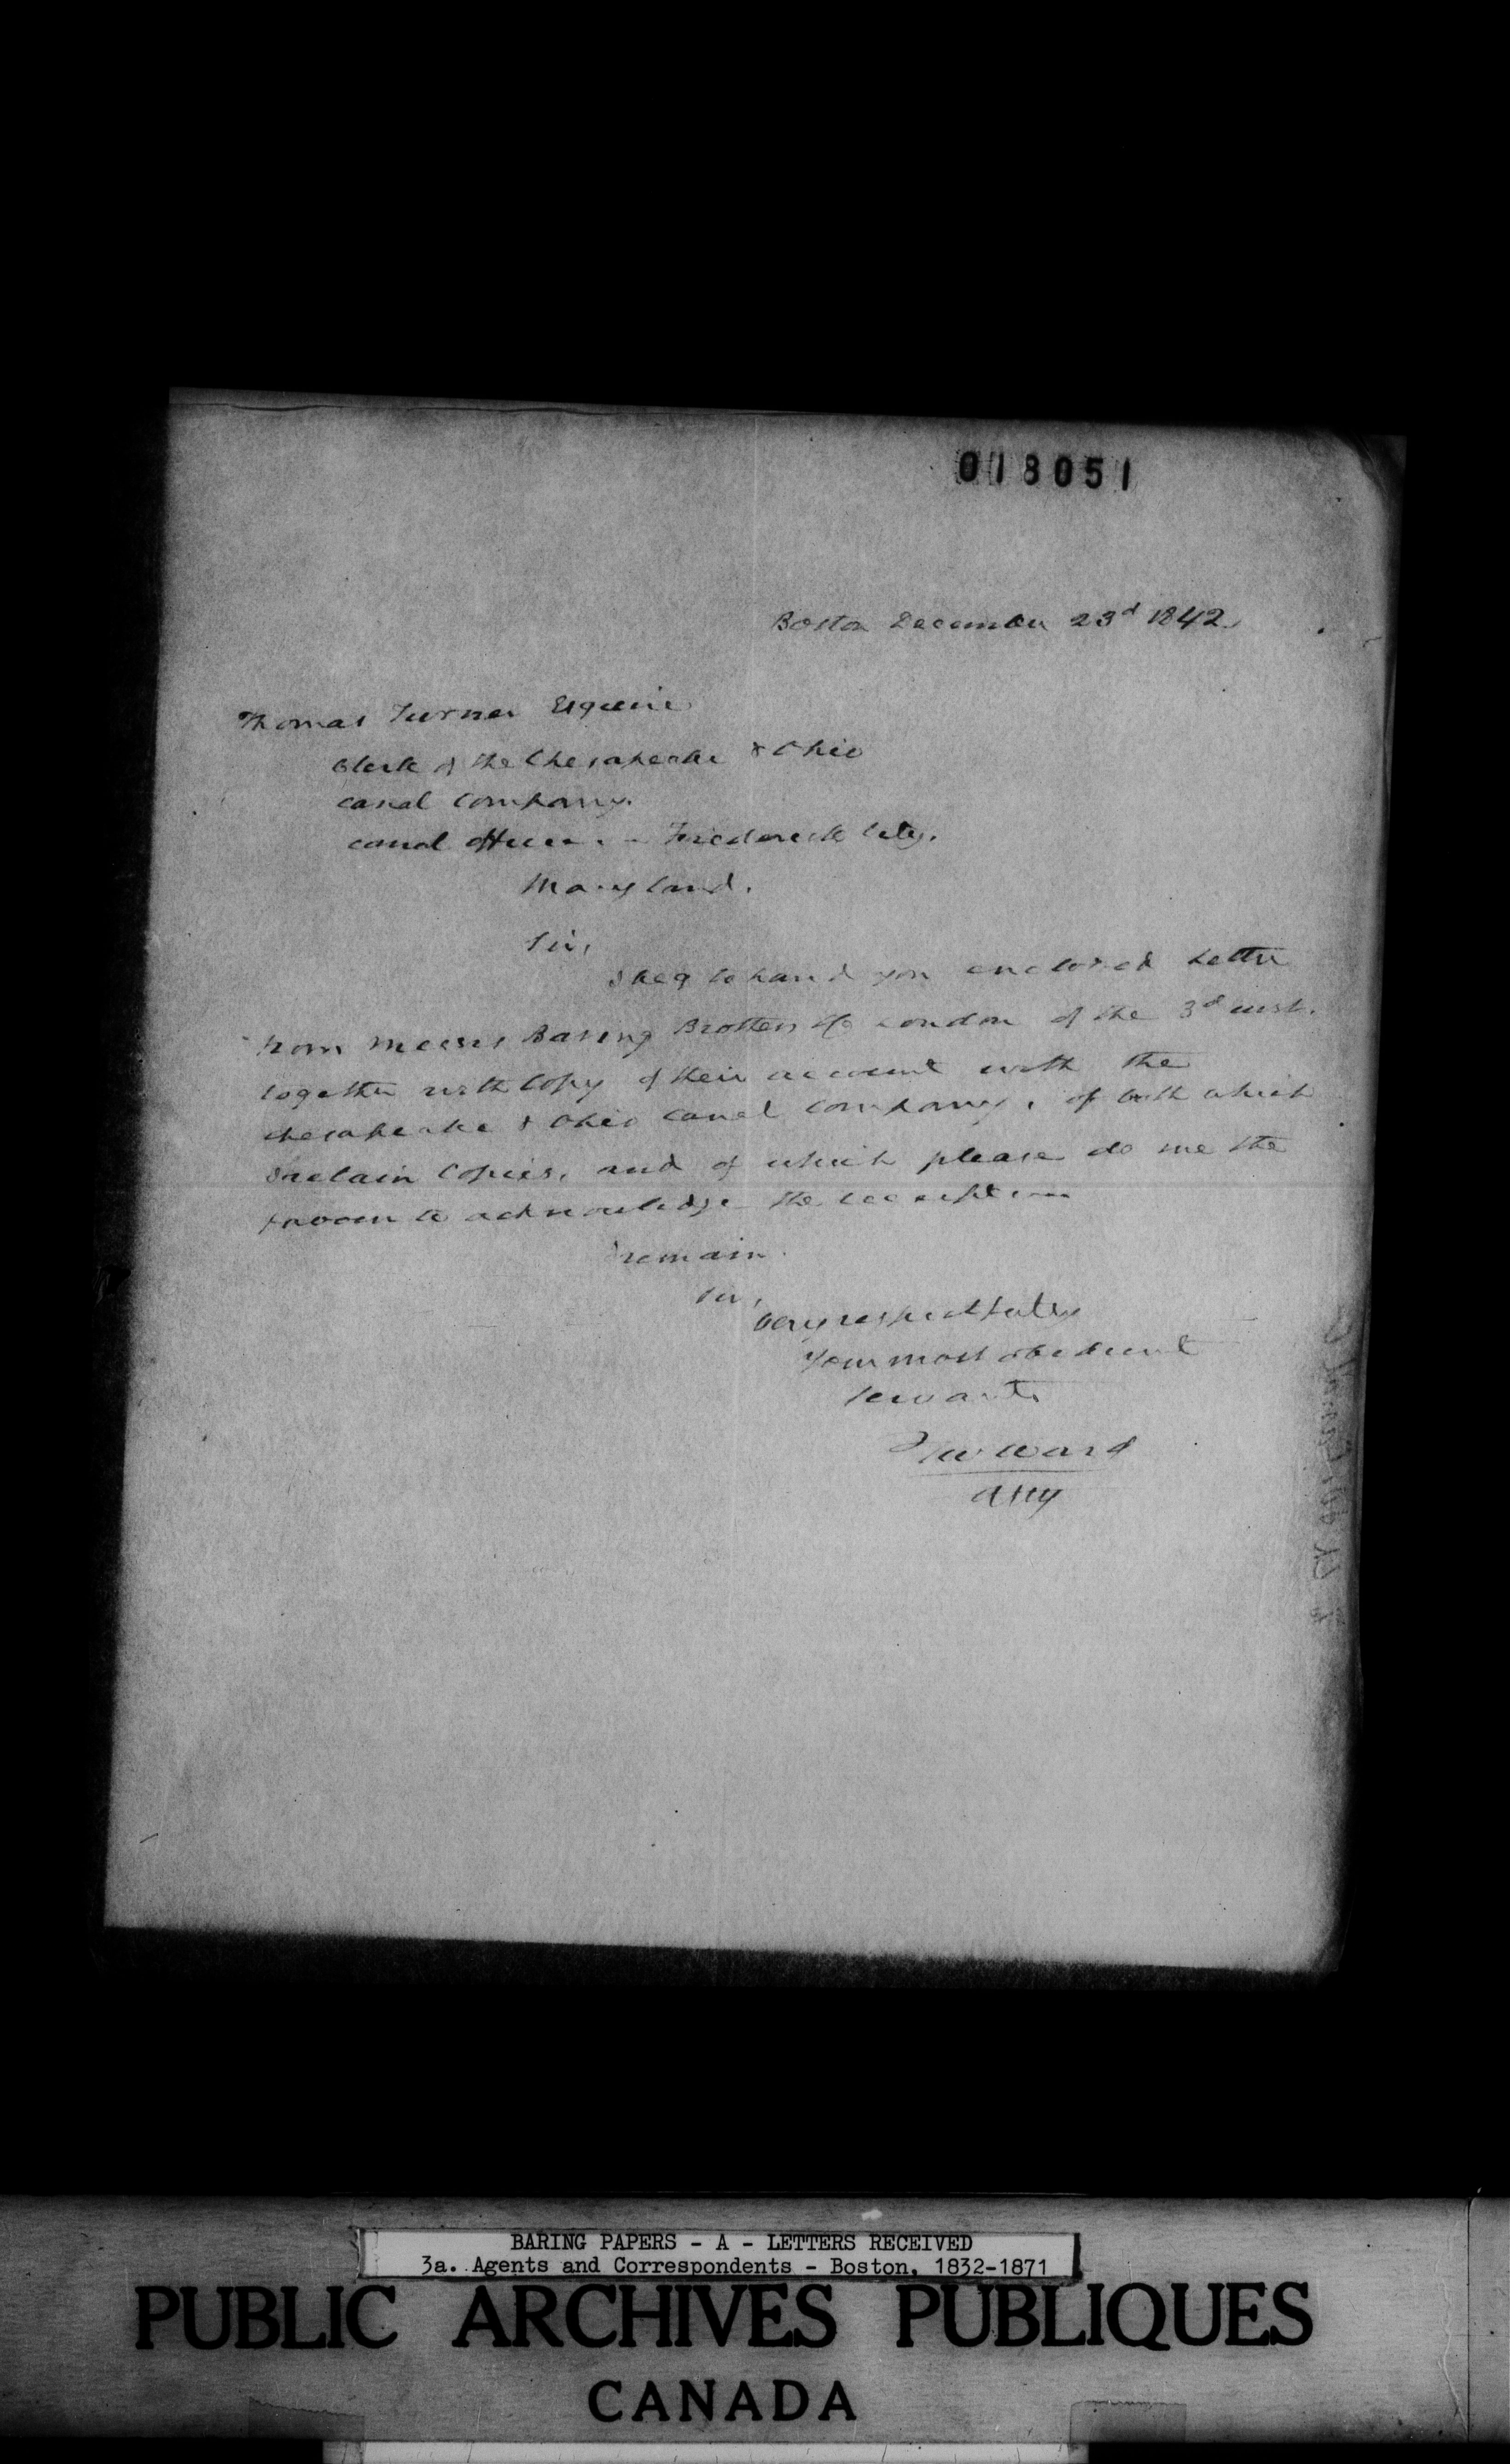 018051
Boston December 23d 1842.
Thomas Turner Esquire
Clerk of the Chesapeake & Ohio
Canal Company.
Canal Office. - Frederick City.
Maryland.
Sir,
I beg to hand you enclosed Letter
from Messrs Baring Brothers & Co London of the 3d inst.
together with Copy of their account with the
Chesapeake & Ohio Canal Company, of both which
I retain Copies, and of which please do me the
favour to acknowledge the reception
I remain
Sir,
Very respectfully
Your most obedient
Servant
T W Ward
Atty
BARING PAPERS - A - LETTERS RECEIVED
3a. Agents and Correspondents - Boston, 1832-1871
PUBLIC ARCHIVES PUBLIQUES
CANADA